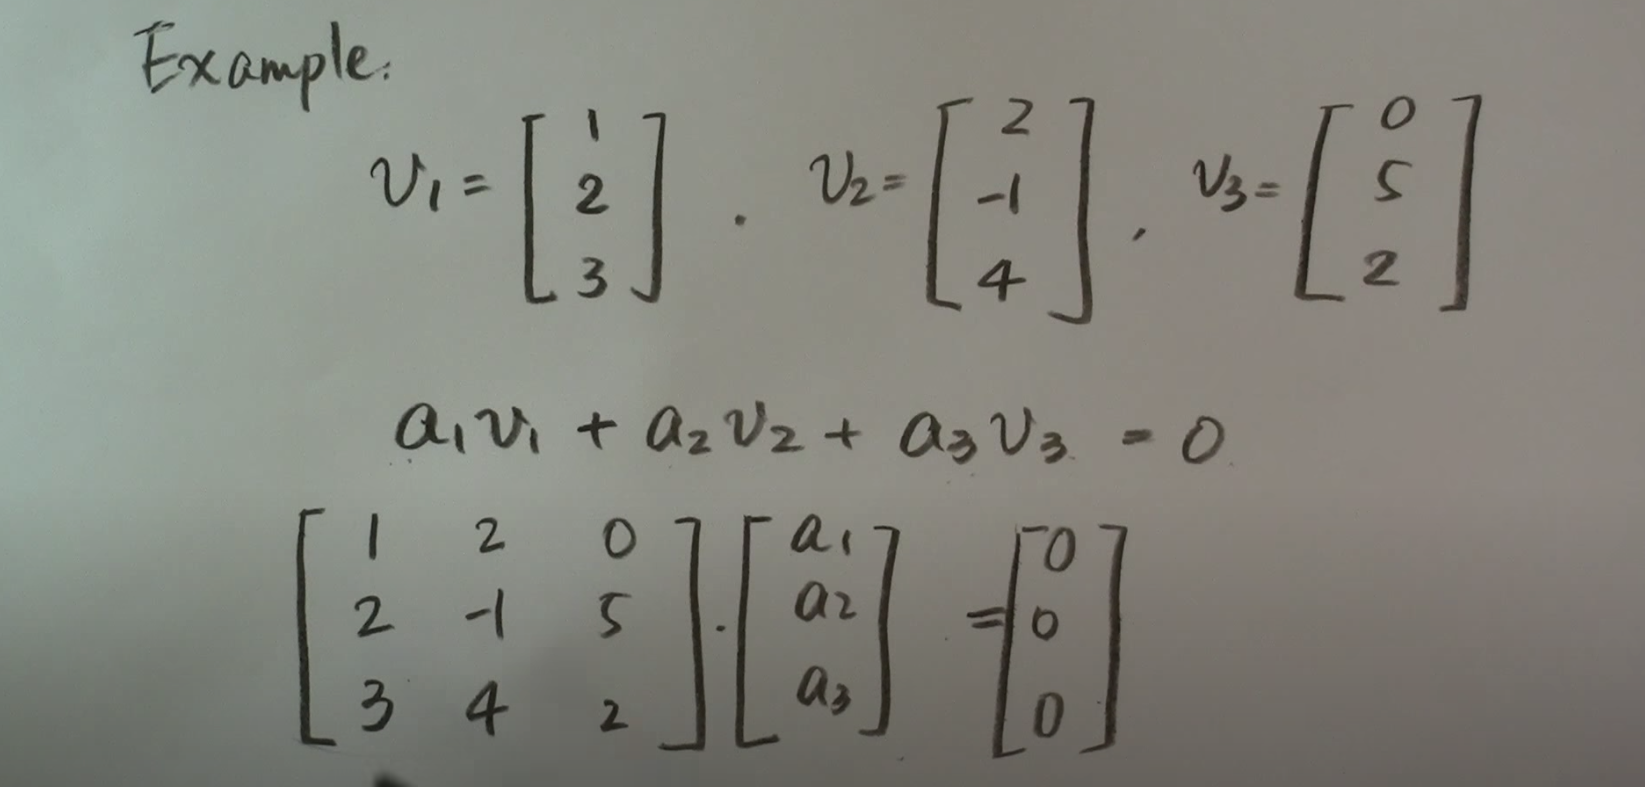 Example:
v₁ = [1 2 3] . v₂ = [2 -1 4] , v₃ = [0 5 2]
a₁v₁ + a₂v₂ + a₃v₃ = 0
[1 2 0] . [a₁] = [0]
[2 -1 5] [a₂] [0]
[3 4 2] [a₃] [0]